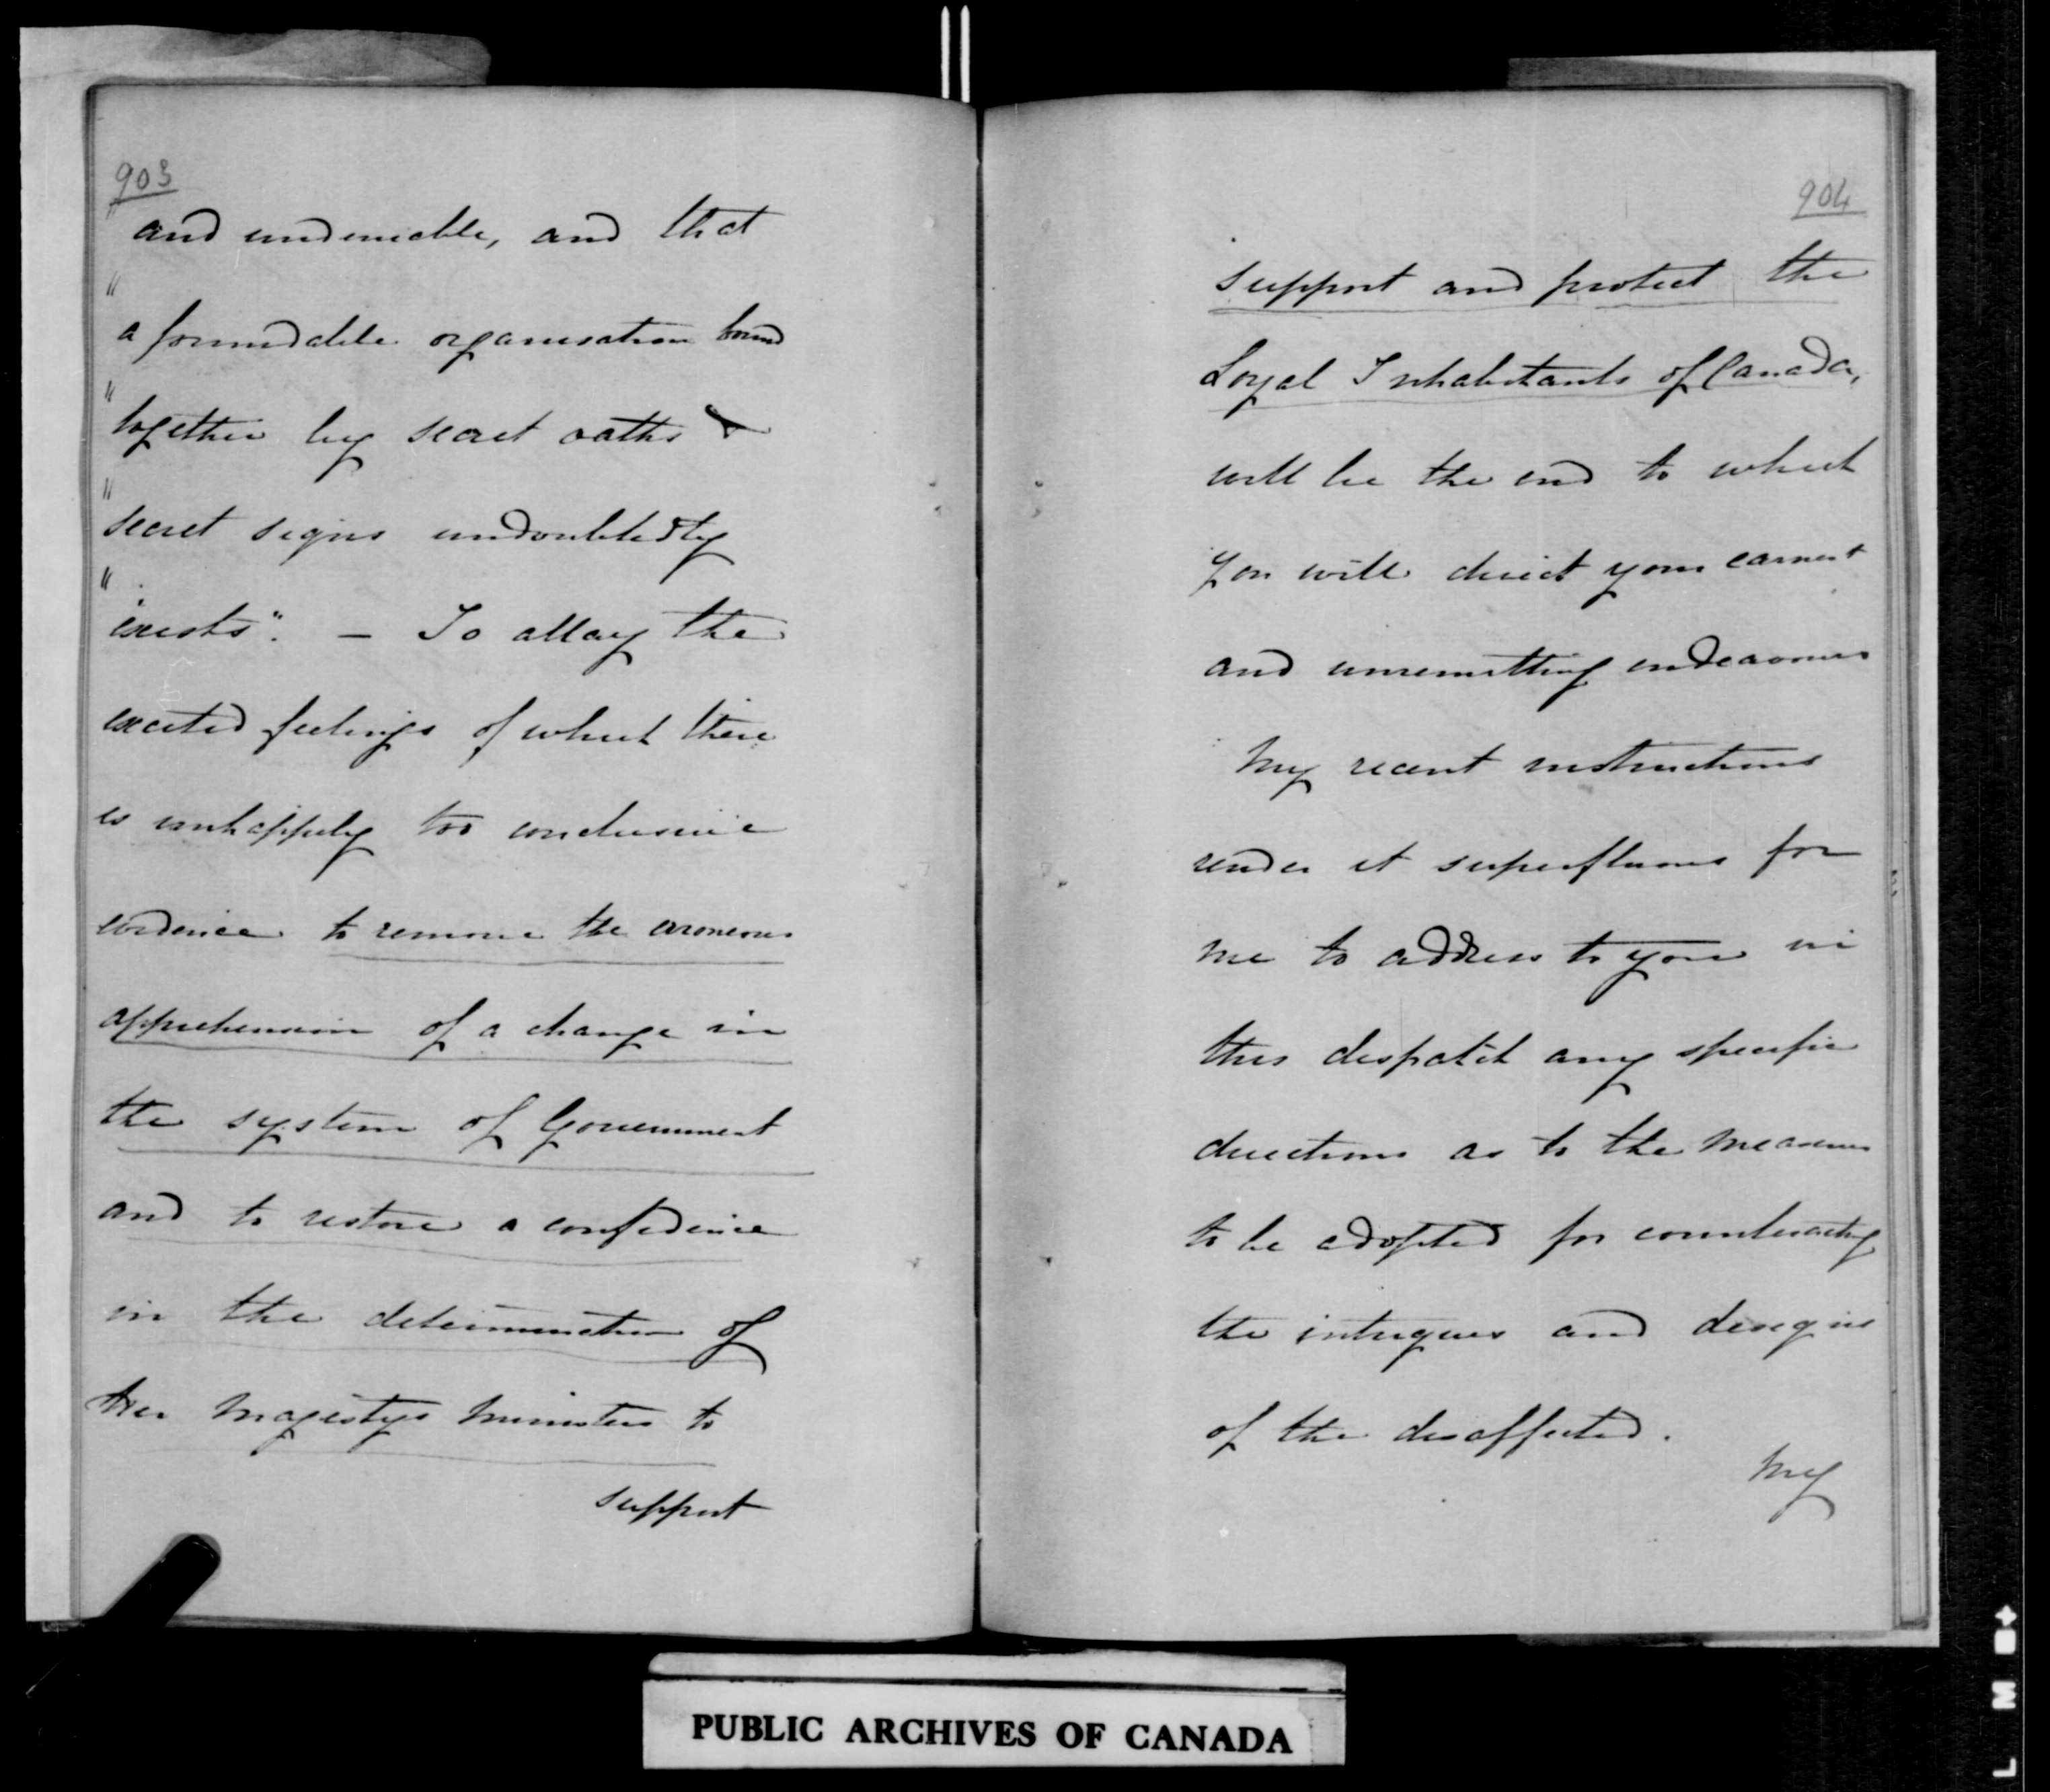 903
" and undeniable, and that
" a formidable organisation bound
" together by secret oaths &
" secret signs undoubtedly
" exists". — To allay the
excited feelings of which there
is unhappily too conclusive
evidence to remove the erroneous
apprehension of a change in
the system of Government
and to restore a confidence
in the determination of
Her Majestys Ministers to
support
904
support and protect the
Loyal Inhabitants of Canada,
will be the end to which
you will direct your earnest
and unremitting endeavours
My recent instructions
render it superfluous for
me to address to you in
this despatch any specific
directions as to the measures
to be adopted for counteracting
the intrigues and designs
of the disaffected.
My
PUBLIC ARCHIVES OF CANADA